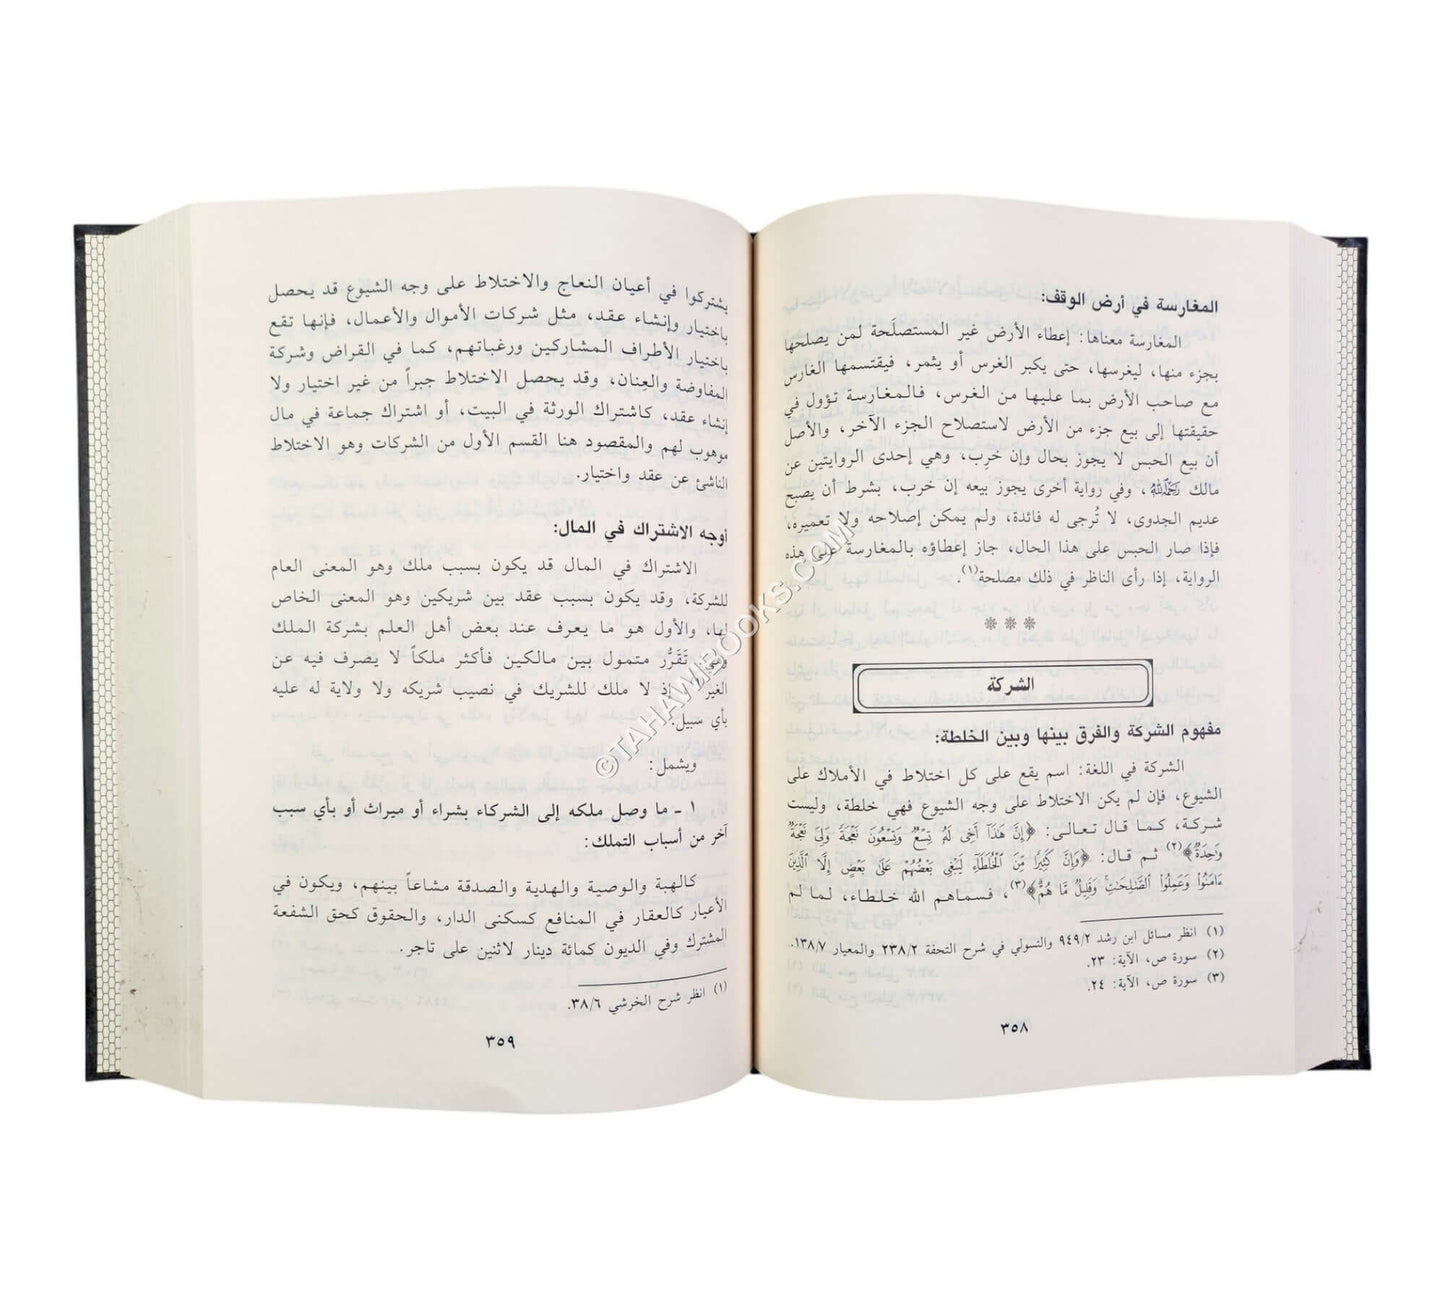 المغارسة في أرض الوقف:
المغارسة معناها: إعطاء الأرض غير المستصلَحة لمن يصلحها
بجزء منها، ليغرسها، حتى يكبر الغرس أو يثمر، فيقتسمها الغارس
مع صاحب الأرض بما عليها من الغرس، فالمغارسة تؤول في
حقيقتها إلى بيع جزء من الأرض لاستصلاح الجزء الآخر، والأصل
أن بيع الحبس لا يجوز بحال وإن خرِب، وهي إحدى الروايتين عن
مالك رَحِمَهُ اللهُ، وفي رواية أخرى يجوز بيعه إن خرب، بشرط أن يصبح
عديم الجدوى، لا تُرجى له فائدة، ولم يمكن إصلاحه ولا تعميره،
فإذا صار الحبس على هذا الحال، جاز إعطاؤه بالمغارسة على هذه
الرواية، إذا رأى الناظر في ذلك مصلحة(١).
❊ ❊ ❊
الشركة
مفهوم الشركة والفرق بينها وبين الخلطة:
الشركة في اللغة: اسم يقع على كل اختلاط في الأملاك على
الشيوع، فإن لم يكن الاختلاط على وجه الشيوع فهي خلطة، وليست
شركة، كما قال تعالى: ﴿إِنَّ هَٰذَآ أَخِى لَهُۥ تِسْعٌ وَتِسْعُونَ نَعْجَةً وَلِىَ نَعْجَةٌ
وَٰحِدَةٌ﴾(٢) ثم قال: ﴿وَإِنَّ كَثِيرًا مِّنَ ٱلْخُلَطَآءِ لَيَبْغِى بَعْضُهُمْ عَلَىٰ بَعْضٍ إِلَّا ٱلَّذِينَ
ءَامَنُوا۟ وَعَمِلُوا۟ ٱلصَّٰلِحَٰتِ وَقَلِيلٌ مَّا هُمْ﴾(٣)، فسماهم الله خلطاء، لما لم
(١) انظر مسائل ابن رشد ٩٤٩/٢ والتسولي في شرح التحفة ٢٣٨/٢ والمعيار ١٣٨/٧.
(٢) سورة ص، الآية: ٢٣.
(٣) سورة ص، الآية: ٢٤.
٣٥٨
يشتركوا في أعيان النعاج والاختلاط على وجه الشيوع قد يحصل
باختيار وإنشاء عقد، مثل شركات الأموال والأعمال، فإنها تقع
باختيار الأطراف المشاركين ورغباتهم، كما في القراض وشركة
المفاوضة والعِنان، وقد يحصل الاختلاط جبراً من غير اختيار ولا
إنشاء عقد، كاشتراك الورثة في البيت، أو اشتراك جماعة في مال
موهوب لهم والمقصود هنا القسم الأول من الشركات وهو الاختلاط
الناشئ عن عقد واختيار.
أوجه الاشتراك في المال:
الاشتراك في المال قد يكون بسبب ملك وهو المعنى العام
للشركة، وقد يكون بسبب عقد بين شريكين وهو المعنى الخاص
لها، والأول هو ما يعرف عند بعض أهل العلم بشركة الملك
وهي: تَقَرُّر متمول بين مالكين فأكثر ملكاً لا يصرف فيه عن
الغير إذ لا ملك للشريك في نصيب شريكه ولا ولاية له عليه
بأي سبيل.
ويشمل:
١ ـ ما وصل ملكه إلى الشركاء بشراء أو ميراث أو بأي سبب
آخر من أسباب التملك:
كالهبة والوصية والهدية والصدقة مشاعاً بينهم، ويكون في
الأعيار كالعقار في المنافع كسكنى الدار، والحقوق كحق الشفعة
المشترك وفي الديون كمائة دينار لاثنين على تاجر.
(١) انظر شرح الخرشي ٣٨/٦.
٣٥٩
©TAHAWIBOOKS.COM